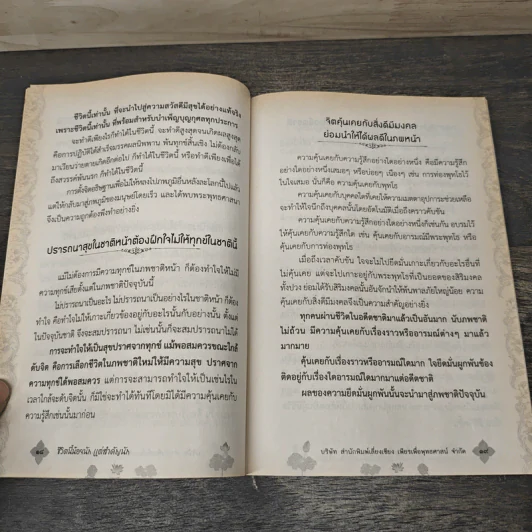 ชีวิตนี้เท่านั้น ที่จะนำไปสู่ความสวัสดีมีสุขได้อย่างแท้จริง
เพราะชีวิตนี้เท่านั้น ที่พร้อมสำหรับบำเพ็ญบุญกุศลทุกประการ
จะทำดีเพียงไรก็ทำได้ในชีวิตนี้ จะทำดีสูงสุดจนเกิดผลสูงสุด
คือการปฏิบัติได้สำเร็จมรรคผลนิพพาน พ้นทุกข์สิ้นเชิง ไม่ต้องกลับ
มาเวียนว่ายตายเกิดอีกต่อไป ก็ทำได้ในชีวิตนี้ หรือทำดีเพียงเพื่อได้
ถึงสวรรค์พ้นนรก ก็ทำได้ในชีวิตนี้
การตั้งจิตอธิษฐานเพื่อไม่ให้หลงไปภพภูมิอื่นหลังละโลกนี้ไปแล้ว
แต่ให้กลับมาสู่ภพภูมิของมนุษย์โดยเร็ว และได้พบพระพุทธศาสนา
จึงเป็นความถูกต้องพึงทำอย่างยิ่ง
ปรารถนาสุขในชาติหน้าต้องฝึกใจไม่ให้ทุกข์ในชาตินี้
แม้ไม่ต้องการมีความทุกข์ในภพชาติหน้า ก็ต้องทำใจให้ไม่มี
ความทุกข์เสียตั้งแต่ในภพชาติปัจจุบันนี้
ไม่ปรารถนาเป็นอะไร ไม่ปรารถนาเป็นอย่างไรในชาติหน้า ก็ต้อง
ทำใจ คือทำใจไม่ให้เกาะเกี่ยวข้องอยู่กับอะไรนั้นกับอย่างนั้น ตั้งแต่
ในปัจจุบันชาติ จึงจะสมปรารถนา ไม่เช่นนั้นก็จะสมปรารถนาไม่ได้
การจะทำใจให้เป็นสุขปราศจากทุกข์ แม้พอสมควรขณะใกล้
ดับจิต คือการเลือกชีวิตในภพชาติใหม่ให้มีความสุข ปราศจาก
ความทุกข์ได้พอสมควร แต่การจะสามารถทำใจให้เป็นเช่นไรใน
เวลาใกล้จะดับจิตนั้น ก็มิใช่จะทำได้ทันทีโดยมิได้มีความคุ้นเคยกับ
ความรู้สึกเช่นนั้นมาก่อน
๑๘ ชีวิตนี้น้อยนัก แต่สำคัญนัก
จิตคุ้นเคยกับสิ่งดีมีมงคล
ย่อมนำให้ได้ผลดีในภพหน้า
ความคุ้นเคยกับความรู้สึกอย่างใดอย่างหนึ่ง คือมีความรู้สึก
อย่างใดอย่างหนึ่งเสมอๆ หรือบ่อยๆ เนืองๆ เช่น การท่องพุทโธไว้
ในใจเสมอ นั่นก็คือ ความคุ้นเคยกับพุทโธ
ความคุ้นเคยกับบุคคลใดที่เคยให้ความเมตตาอุปการะช่วยเหลือ
จะทำให้ใจนึกถึงบุคคลนั้นโดยอัตโนมัติเมื่อถึงคราวคับขัน
ความคุ้นเคยกับความรู้สึกอย่างใดอย่างหนึ่งก็เช่นกัน อบรมใจ
ไว้ให้คุ้นเคยกับความรู้สึกใด เช่น คุ้นเคยกับอารมณ์มีพระพุทโธ หรือ
คุ้นเคยกับการท่องพุทโธ
เมื่อถึงเวลาคับขัน ใจจะไม่ไปยึดมั่นเกาะเกี่ยวกับอะไรอื่นที่
ไม่คุ้นเคย แต่จะไปเกาะอยู่กับพระพุทโธที่เป็นยอดของสิริมงคล
ทั้งปวง ย่อมได้รับสิริมงคลนั้นอันจักนำให้พ้นพาลภัยใหญ่น้อย ความ
คุ้นเคยกับสิ่งดีมีมงคลจึงเป็นความสำคัญอย่างยิ่ง
ทุกคนผ่านชีวิตในอดีตชาติมาแล้วเป็นอันมาก นับภพชาติ
ไม่ถ้วน มีความคุ้นเคยกับเรื่องราวหรืออารมณ์ต่างๆ มาแล้ว
มากมาย
คุ้นเคยกับเรื่องราวหรืออารมณ์ใดมาก ใจยึดมั่นผูกพันข้อง
ติดอยู่กับเรื่องใดอารมณ์ใดมากมาแต่อดีตชาติ
ผลของความยึดมั่นผูกพันนั้นจะนำมาสู่ภพชาติปัจจุบัน
บริษัท สำนักพิมพ์เลี่ยงเชียง เพียรเพื่อพุทธศาสน์ จำกัด ๑๙